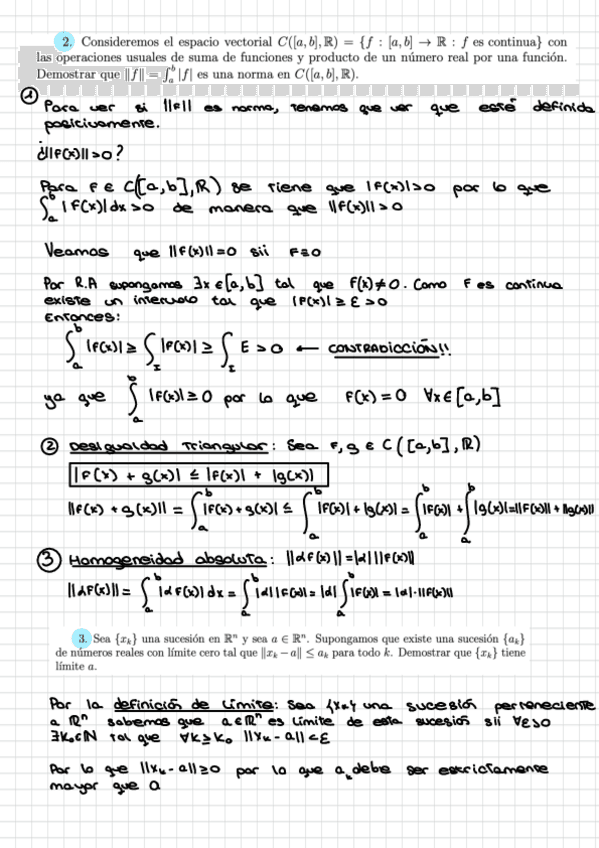 2. Consideremos el espacio vectorial C([a, b], ℝ) = {f : [a, b] → ℝ : f es continua} con
las operaciones usuales de suma de funciones y producto de un número real por una función.
Demostrar que ‖f‖ = ∫ₐᵇ |f| es una norma en C([a, b], ℝ).
① Para ver si ||F|| es norma, tenemos que ver que esté definida
positivamente.
¿||F(x)||>0?
Para F ∈ C([a,b],ℝ) se tiene que |F(x)|>0 por lo que
∫ₐᵇ |F(x)|dx>0 de manera que ||F(x)||>0
Veamos que ||F(x)||=0 sii F≡0
Por R.A supongamos ∃x∈[a,b] tal que F(x)≠0. Como F es continua
existe un intervalo tal que |F(x)|≥ε>0
Entonces:
∫ₐᵇ |F(x)|≥ ∫_I |F(x)|≥ ∫_I ε>0 ← CONTRADICCIÓN!!
ya que ∫ₐᵇ |F(x)|≥0 por lo que F(x)=0 ∀x∈[a,b]
② Desigualdad Triangular: Sea F,g ∈ C([a,b],ℝ)
|F(x) + g(x)| ≤ |F(x)| + |g(x)|
||F(x) + g(x)|| = ∫ₐᵇ |F(x)+g(x)| ≤ ∫ₐᵇ |F(x)|+|g(x)| = ∫ₐᵇ |F(x)| + ∫ₐᵇ |g(x)|=||F(x)|| + ||g(x)||
③ Homogeneidad absoluta: ||αF(x)||=|α|||F(x)||
||αF(x)||= ∫ₐᵇ |αF(x)|dx = ∫ₐᵇ |α||F(x)|= |α| ∫ₐᵇ |F(x)| = |α|·||F(x)||
3. Sea {xₖ} una sucesión en ℝⁿ y sea a ∈ ℝⁿ. Supongamos que existe una sucesión {aₖ}
de números reales con límite cero tal que ‖xₖ − a‖ ≤ aₖ para todo k. Demostrar que {xₖ} tiene
límite a.
Por la definición de Límite: Sea {xₖ} una sucesión perteneciente
a ℝⁿ sabemos que a∈ℝⁿ es límite de esta sucesión sii ∀ε>0
∃k₀∈ℕ tal que ∀k≥k₀ ||xₖ-a||<ε
Por lo que ||xₖ-a||≥0 por lo que aₖ debe ser estrictamente
mayor que 0